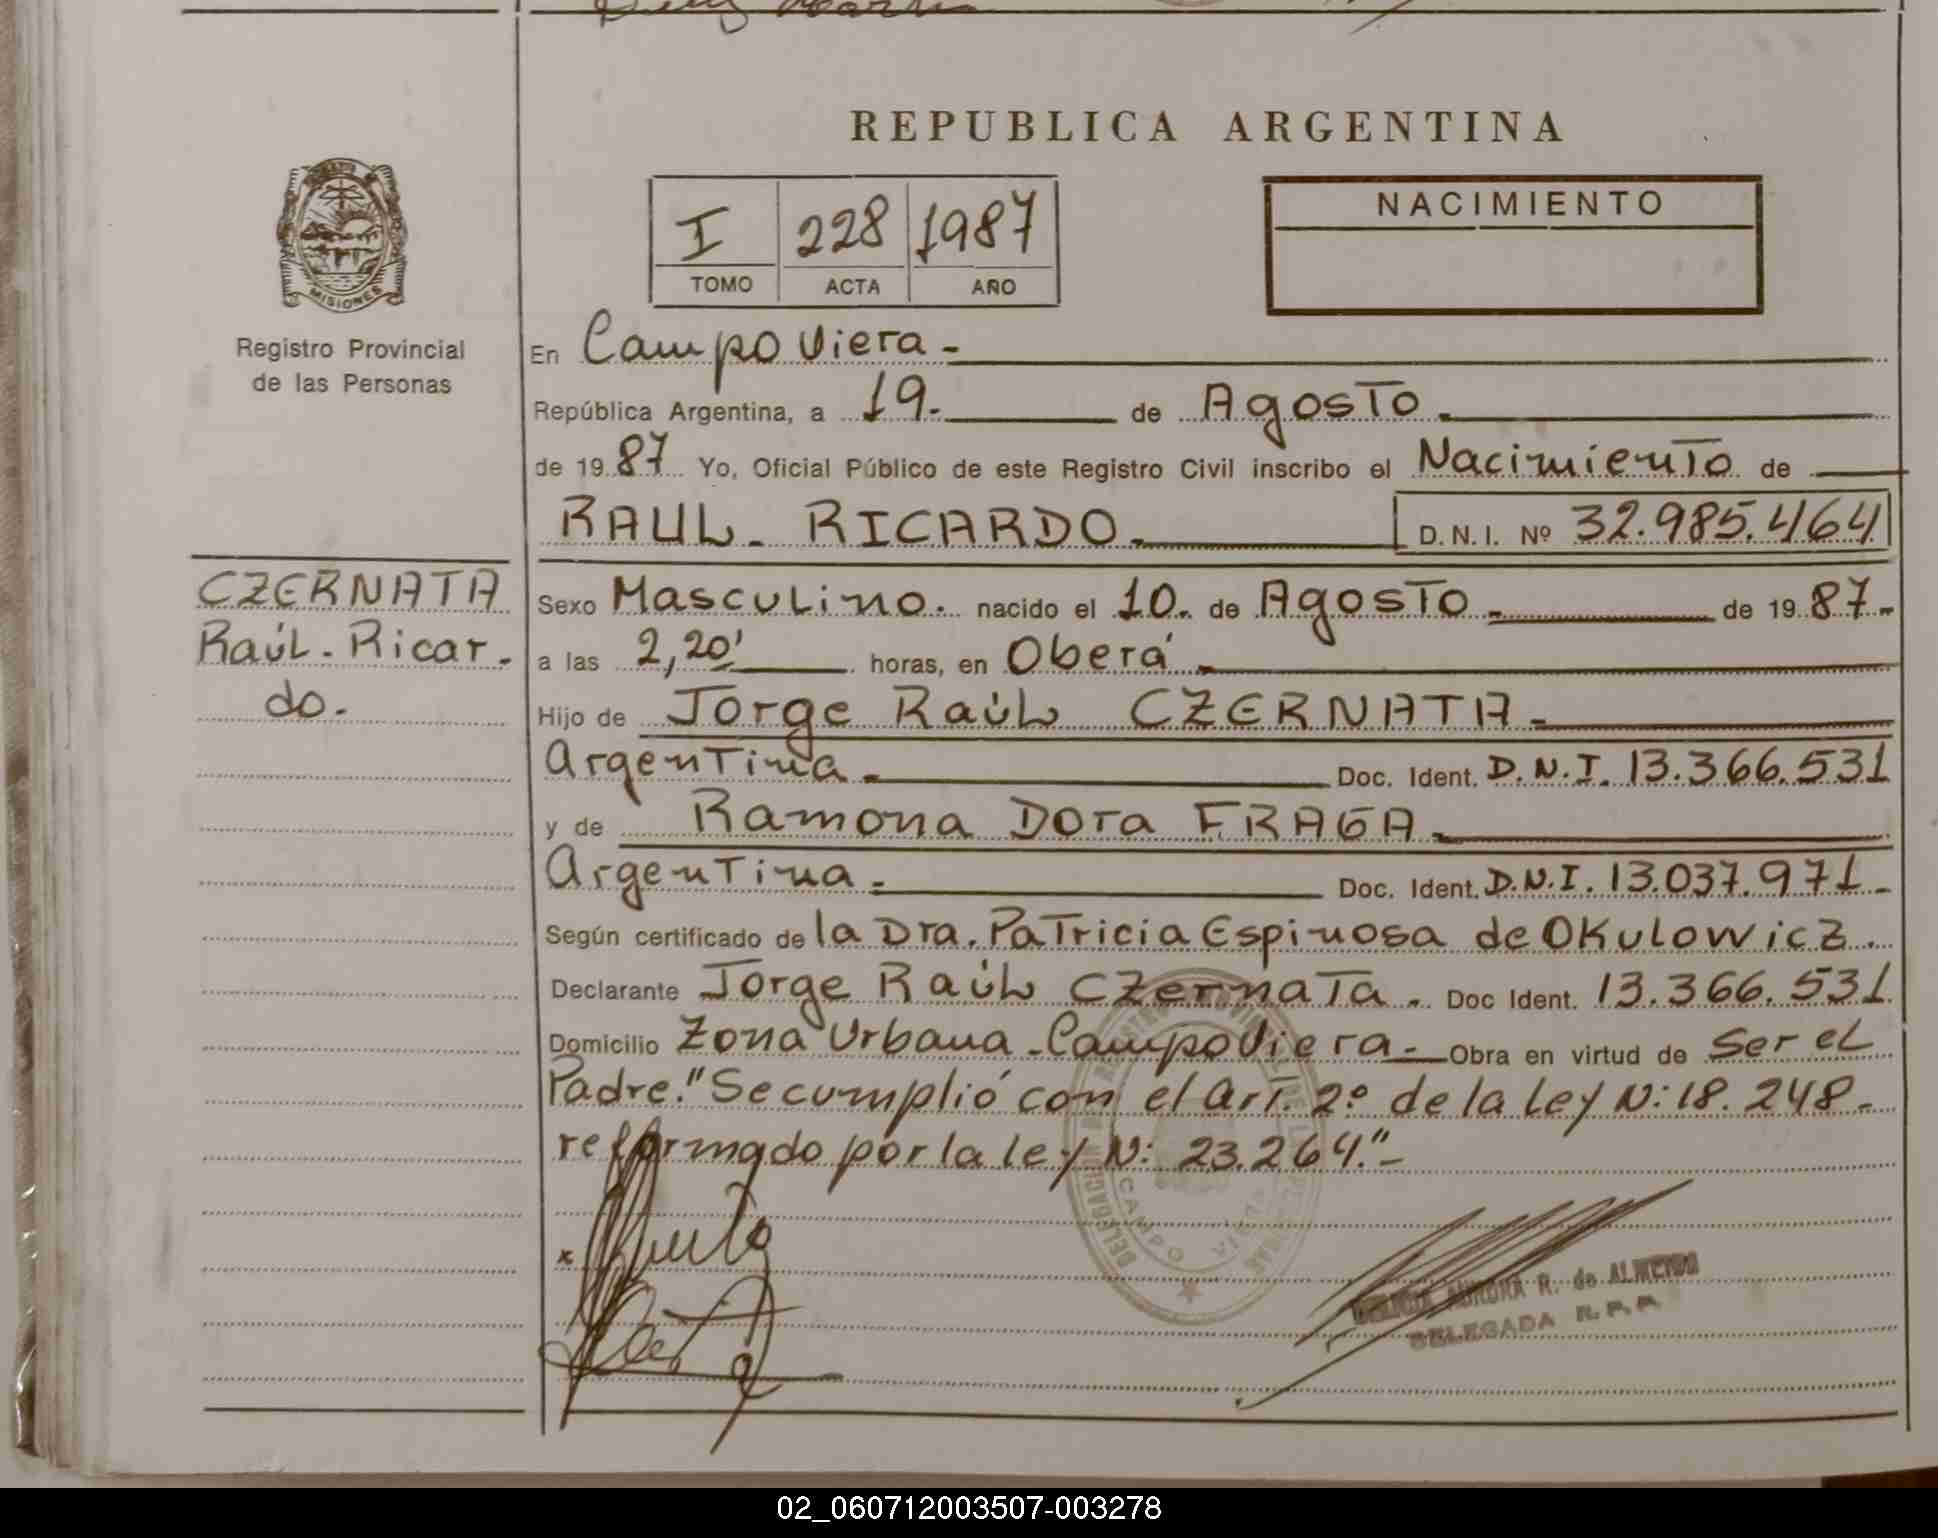 REPUBLICA ARGENTINA
MISIONES
Registro Provincial
de las Personas
I 228 1987
TOMO ACTA AÑO
NACIMIENTO
En Campo Viera -
República Argentina, a 19- de Agosto -
de 19 87 Yo, Oficial Público de este Registro Civil inscribo el Nacimiento de
RAUL - RICARDO - D.N.I. Nº 32.985.464
CZERNATA
Raúl - Ricar -
do -
Sexo Masculino. nacido el 10. de Agosto - de 19 87 -
a las 2,20' horas, en Oberá -
Hijo de Jorge Raúl CZERNATA -
Argentina - Doc. Ident. D.N.I. 13.366.531
y de Ramona Dora FRAGA -
Argentina - Doc. Ident. D.N.I. 13.037.971 -
Según certificado de la Dra. Patricia Espinosa de OKulowicz.
Declarante Jorge Raúl Czernata - Doc Ident. 13.366.531
Domicilio Zona Urbana - Campo Viera - Obra en virtud de Ser el
Padre. "Se cumplió con el art. 2º de la Ley N: 18.248 -
reformado por la ley N: 23.264." -
CAMPO VIERA
AURORA R. de ALMEIDA
DELEGADA R.P.P.
02_060712003507-003278